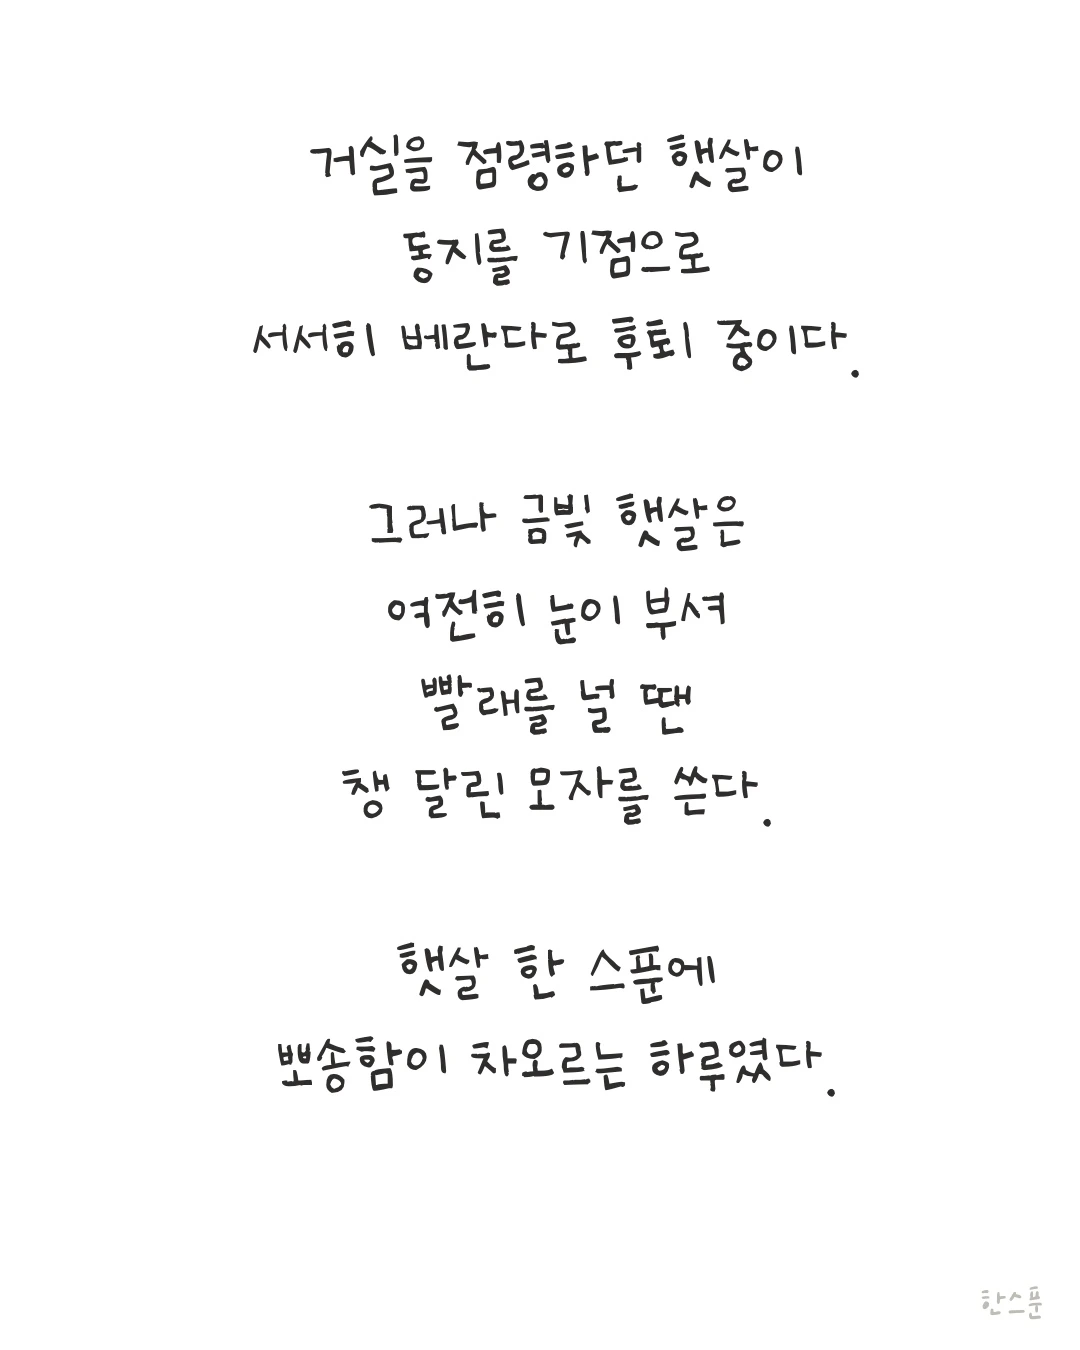 거실을 점령하던 햇살이
동지를 기점으로
서서히 베란다로 후퇴 중이다.
그러나 금빛 햇살은
여전히 눈이 부셔
빨래를 널 땐
챙 달린 모자를 쓴다.
햇살 한 스푼에
뽀송함이 차오르는 하루였다.
한스푼